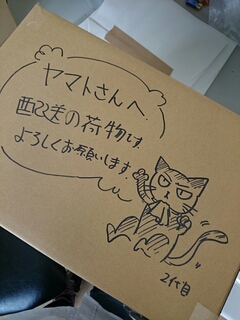 ヤマトさんへ.
配送の荷物です.
よろしくお願いします.
2代目